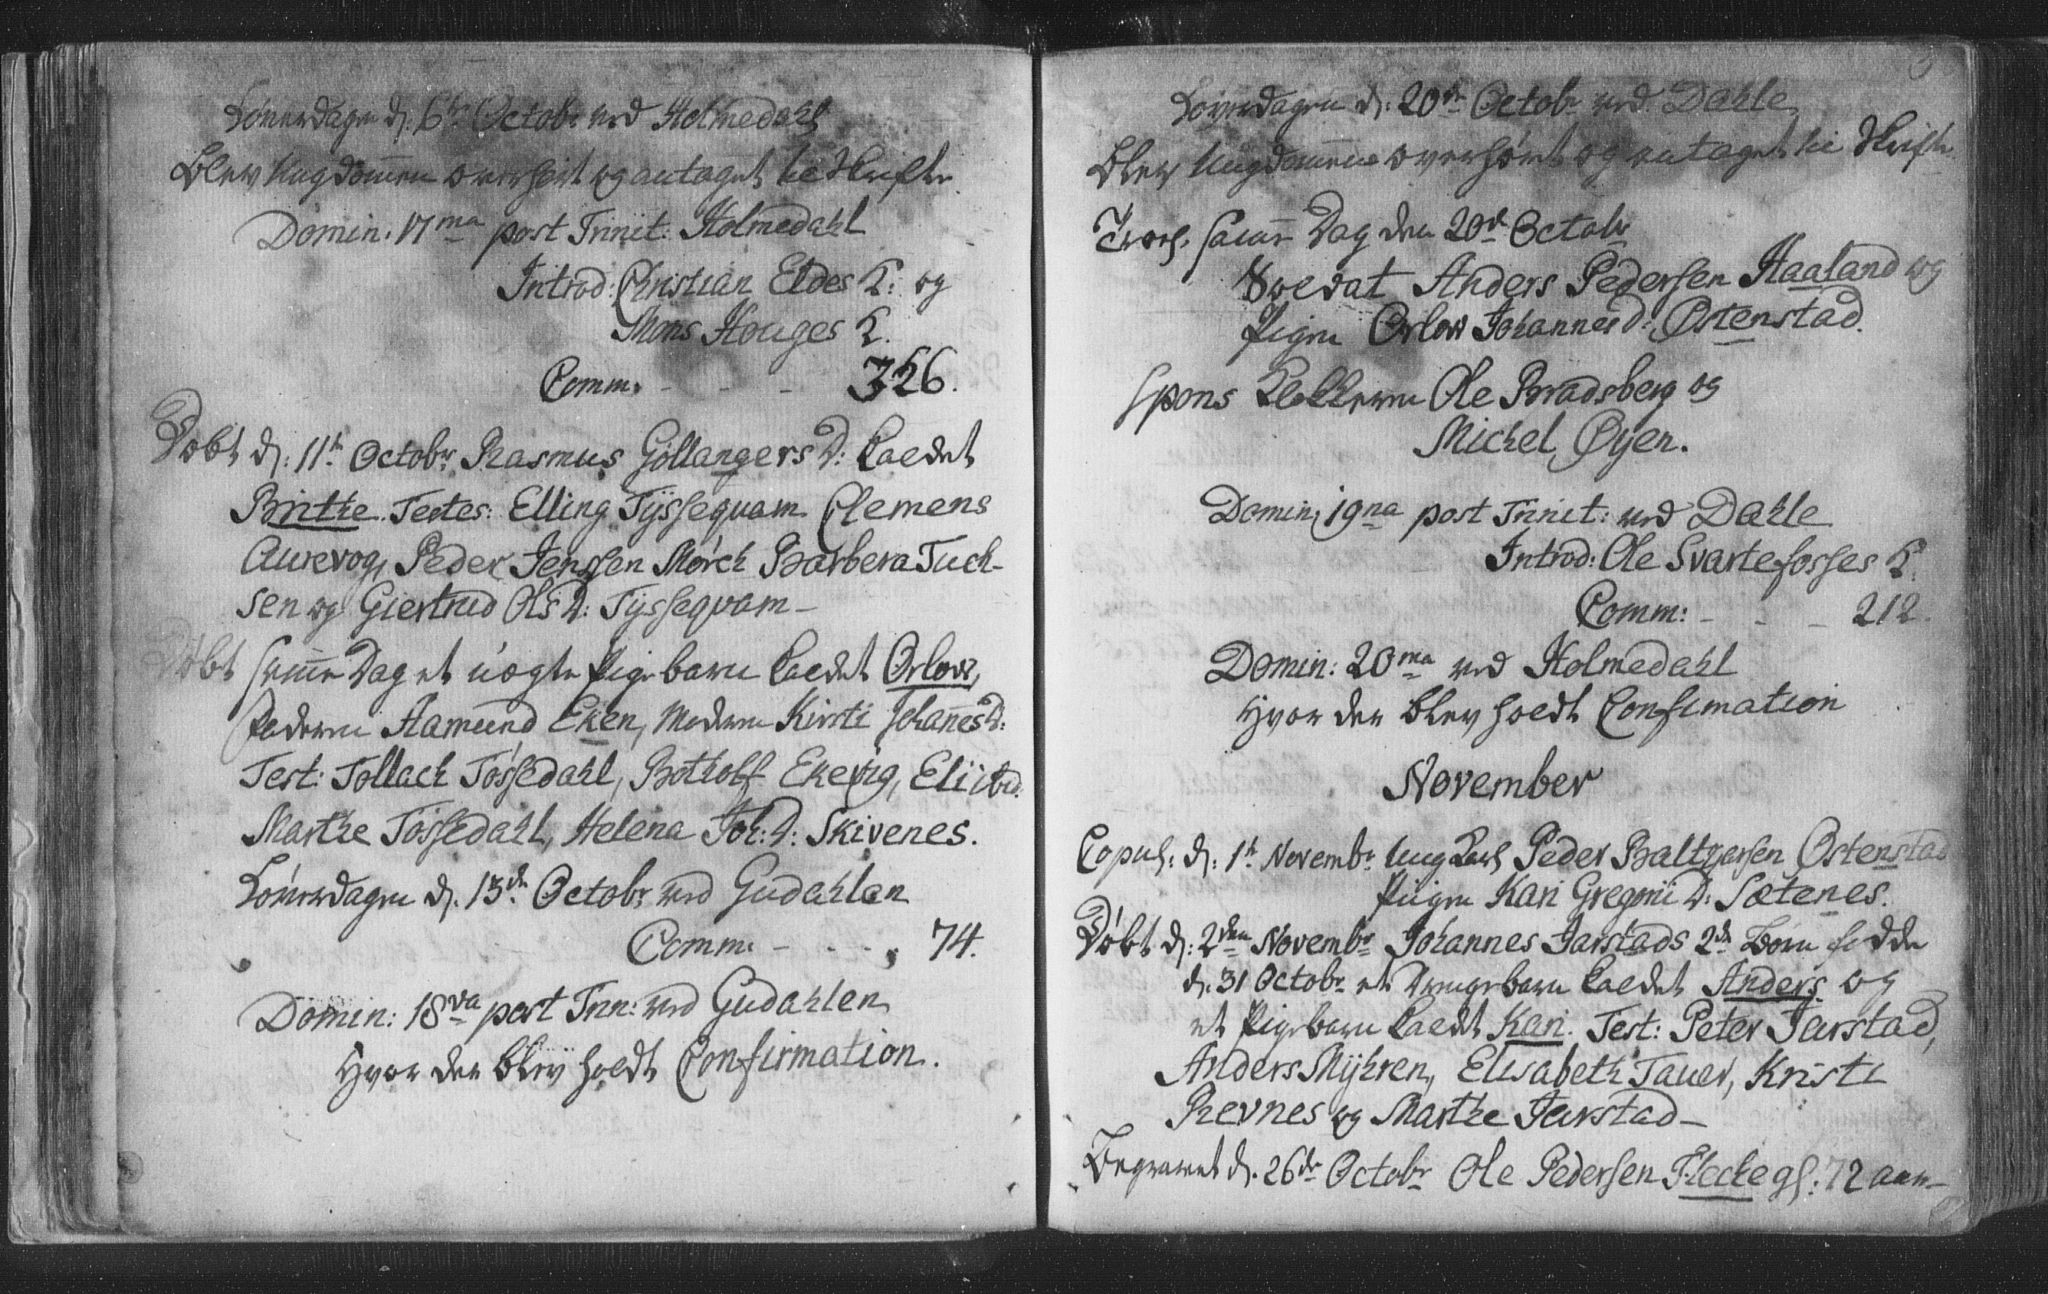 Løverdagen d: 6te Octobr ved Holmedahl
blev Ungdommen overhørt og antaget til Skrifte.
Domin: 17ma post Trinit: Holmedahl
Introd: Christian Eldes K: og
Mons Houges K.
Comm: - - - 326.
Døbt d: 11te Octobr Rasmus Göllangers D: kaldet
Brithe. Testes: Elling Tÿssequam Clemens
Aurevog, Peder Jenssen Mørch Barbera Tuch-
sen og Giertrud Ols D: Tÿssequam-
Døbt samme Dag et uægte Pigebarn kaldet Orlow,
Faderen Aamund Eken, Moderen Kirsti Johannes D:
Test: Tollach Tössedahl, Botholf Ekevig,
Marthe Tössedahl, Helena Joh: D: Skivenes.
Løverdagen d. 13de Octobr ved Gudahlen
Comm: - - - 74.
Domin: 18va post Trin: ved Gudahlen
Hvor der blev holdt Confirmation.
Løverdagen d: 20de Octobr ved Dahle
blev Ungdommen overhørt og antaget til Skrifte
Trol. samme Dag den 20de Octobr
Soldat Anders Pedersen Haaland og
Pigen Orlow Johannes D: Østenstad.
Spons Klokkeren Ole Bradsberg og
Michel Øyen.
Domin: 19na post Trinit: ved Dahle
Introd: Ole Svartefosses K.
Comm: - - - 212.
Domin: 20ma ved Holmedahl
Hvor der blev holdt Confimation
November
Copul: d: 1te Novembr Ung Karl Peder Baltzersen Østenstad
Piigen Kari Gregorii D: Sætenes.
Døbt d: 2den Novembr Johannes Jarstads 2de Børn fødde
d. 31 Octobr et Drengebarn kaldet Anders og
et Pigebarn kaldet Kari. Test: Peter Jarstad,
Anders Mÿhren, Elisabeth Tauer, Kristi
Revnes og Marthe Jarstad-
Begravet d. 26de Octobr Ole Pedersen Flecke gl: 72 aar-